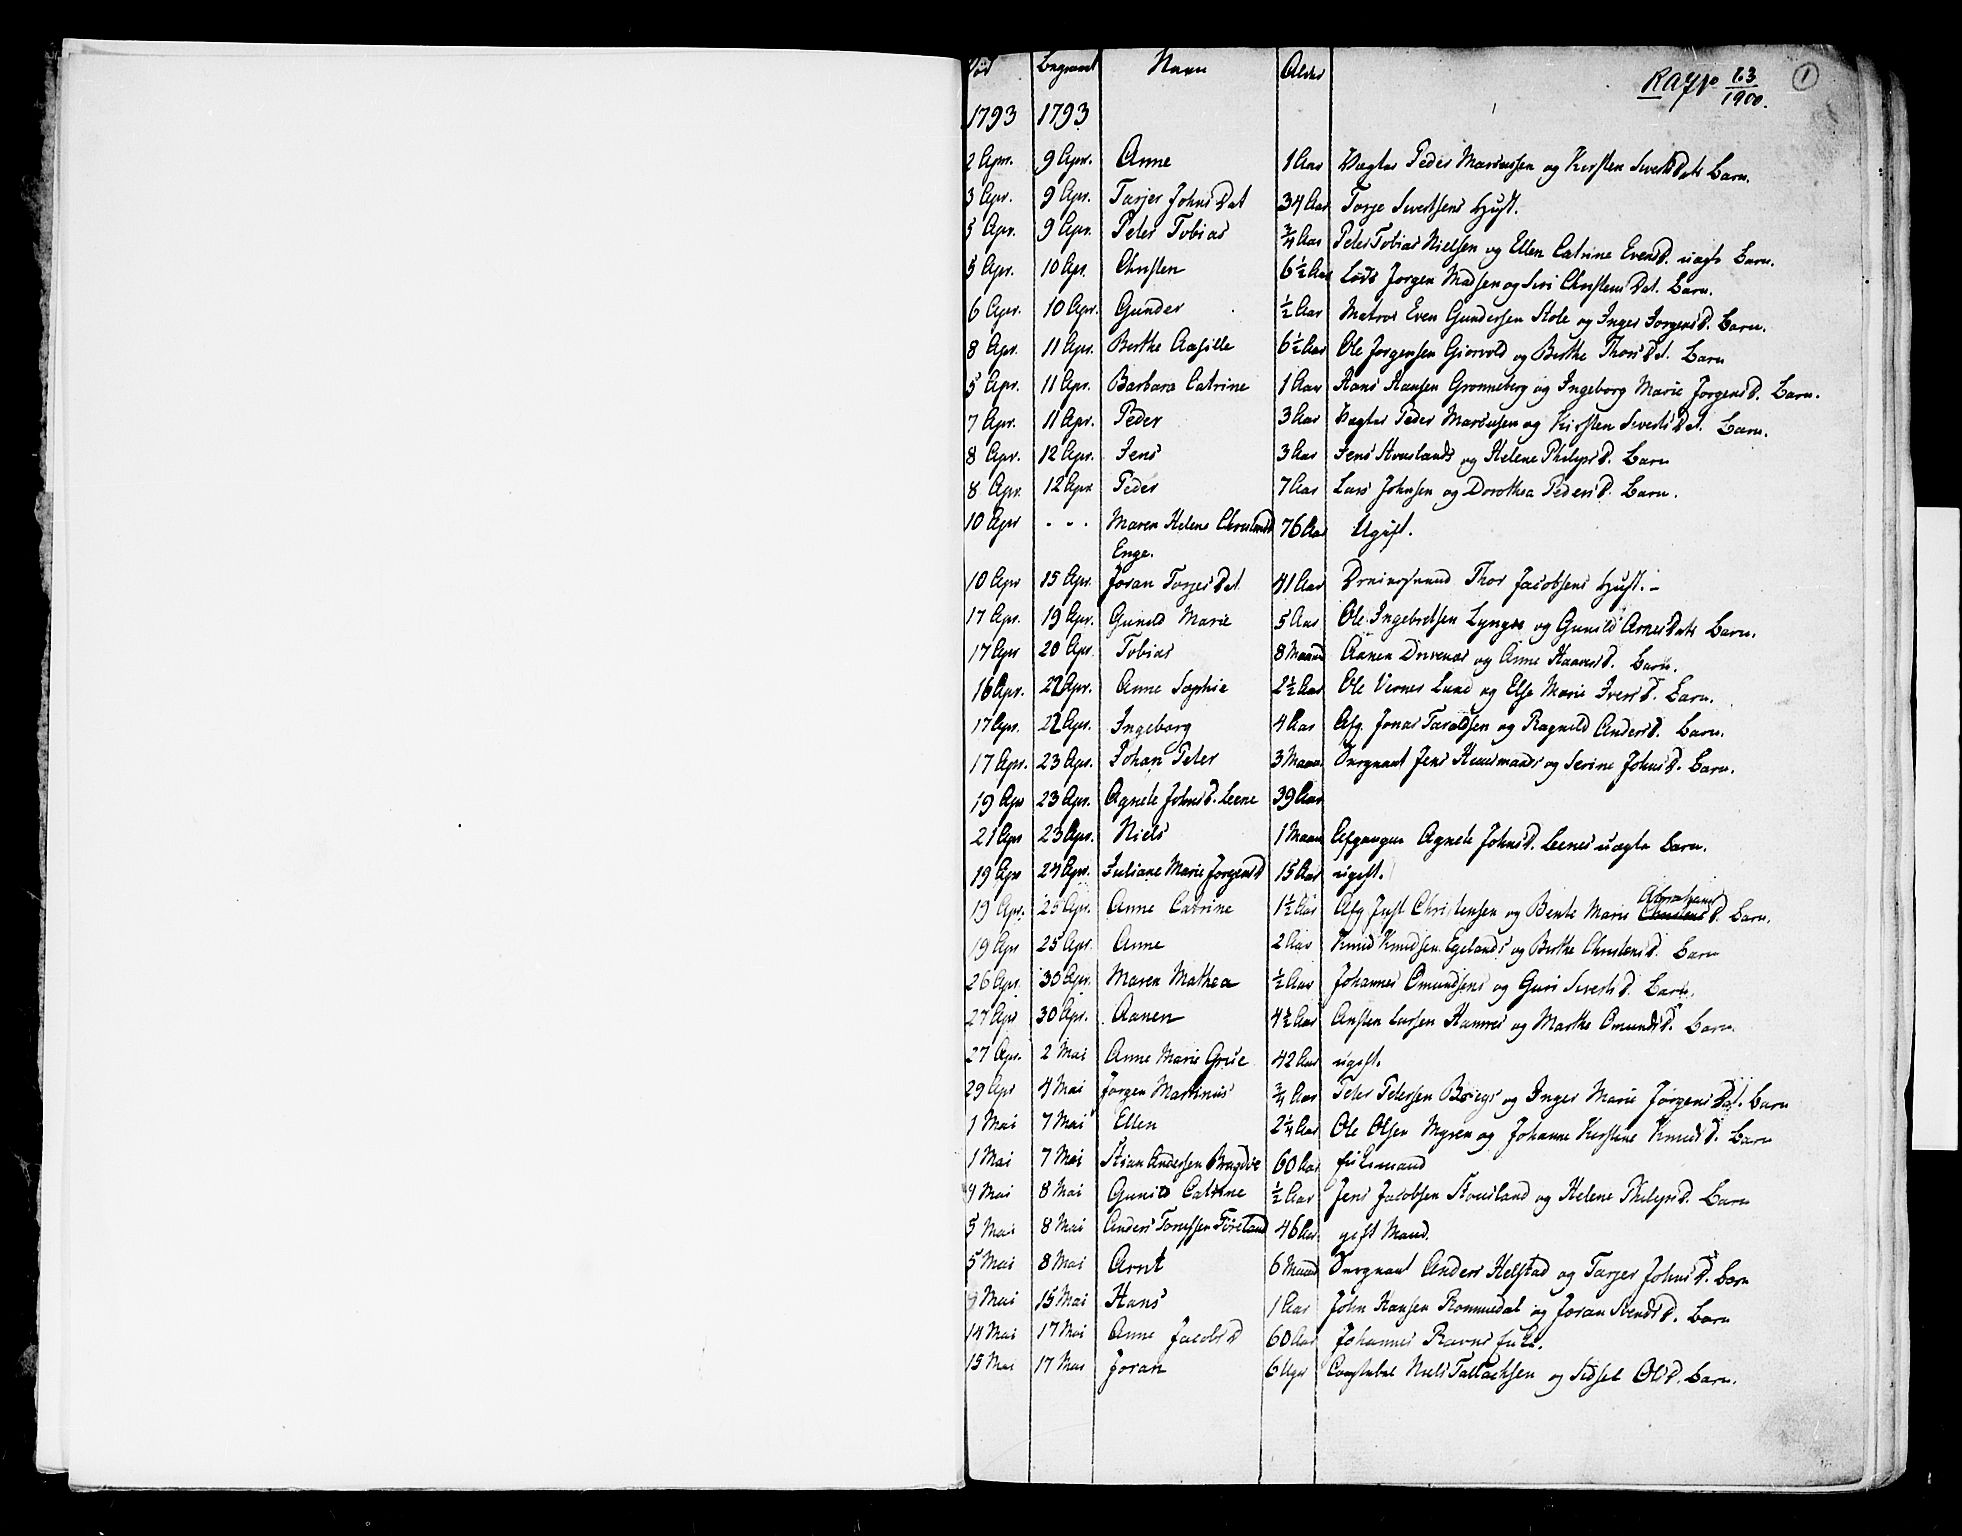 Død Begravet Navn Alder RAJNo 63/1900. 1
1793 1793
2 Apr. 9 Apr. Anne 1 Aar Peder Marcussen og Kirsten Sivertsdats Barn.
3 Apr. 9 Apr. Tarjer Johns Dat 34 Aar Torje Sivertsens Hust.
5 Apr. 9 Apr. Peter Tobias 3/4 Aar Peter Tobias Nielsen og Ellen Catrine Evensd. uægte Barn.
5 Apr. 10 Apr. Christen 6 1/2 Aar Lods Jørgen Madsen og Siri Christens Dat. Barn.
6 Apr. 10 Apr. Gunder 1/2 Aar Matros Even Gundersen Stole og Inger Jørgensd. Barn.
8 Apr. 11 Apr. Berthe Aasille 6 1/2 Aar Ole Jørgensen Giervold og Berthe Thors Dat. Barn
5 Apr. 11 Apr. Barbara Catrine 1 Aar Hans Hansen Grønneberg og Ingeborg Marie Jørgensd. Barn.
7 Apr. 11 Apr. Peder 3 Aar Peder Marcussen og Kirsten Siverts Dat. Barn.
8 Apr. 12 Apr. Jens 3 Aar Jens Stouslands og Helene Philipsd. Barn
8 Apr. 12 Apr. Peder 7 Aar Lars Johnsen og Dorothea Pedersd. Barn.
10 Apr - - - Maren Helene 76 Aar Ugift.
Enge.
10 Apr 15 Apr. Joran Torjes Dat 41 Aar Thor Jacobsens Hust. -
17 Apr. 19 Apr. Gunild Marie 5 Aar Ole Ingebretsen Lyngøe og Gunild Arnes Dats Barn.
17 Apr 20 Apr. Tobias 8 Maan Aanen Drivenes og Anne Haavesd. Barn.
16 Apr. 22 Apr. Anne Sophie 2 1/2 Aar Ole Verner Lund og Else Marie Iversd. Barn.
17 Apr. 22 Apr. Ingeborg 4 Aar Afg. Jonas Taraldsen og Ragnild Andersd. Barn.
17 Apr. 23 Apr. Johan Peter 3 Maan. Sergeant Jens Huusmands og Serine Johnsd. Barn.
19 Apr 23 Apr. Agnete Johnsd. Leene 39 Aar
21 Apr 23 Apr. Niels 1 Maan Afgangne Agnete Johnsd. Leenes uægte Barn.
19 Apr 24 Apr. Juliane Marie Jørgensd 15 Aar ugift.
19 Apr. 25 Apr. Anne Catrine 1 1/2 Aar Afg Just Christensen og Bente Marie Christens Abrahamsd. Barn.
19 Apr 25 Apr. Anne 2 Aar Knud Knudsen Egelands og Berthe Christensd. Barn
26 Apr. 30 Apr. Maren Mathea 1/2 Aar Johannes Omundsens og Guri Sivertsd. Barn.
27 Apr 30 Apr. Aanen 4 1/2 Aar Ansten Larsen Hamres og Marthe Omundsd. Barn.
27 Apr. 2 Mai Anne Marie Grue 42 Aar ugift.
29 Apr 4 Mai Jørgen Martinus 3/4 Aar Peter Petersen Boiegs og Inger Marie Jørgens Dat. Barn
1 Mai 7 Mai Ellen 2 1/4 Aar Ole Olsen Myren og Johanne Kirstine Knudsd. Barn
1 Mai 7 Mai Stian Andersen Bragdøe 60 Aar Enkemand
4 Mai 8 Mai Gunild Catrine 1/2 Aar Jens Jacobsen Stousland og Helene Philipsd. Barn
5 Mai 8 Mai Anders 46 Aar gift Mand.
5 Mai 8 Mai Arnt 6 Maan Sergeant Anders Helstad og Tarjer Johnsd. Barn
9 Mai 15 Mai Hans 1 Aar John Hansen Rommedal og Joran Svendsd. Barn
14 Mai 17 Mai Anne Jacobsd 60 Aar Johannes Ravns Enke.
15 Mai 17 Mai Joran 6 Uger Constabel Niels Tallachsen og Sidsel Olsd. Barn.